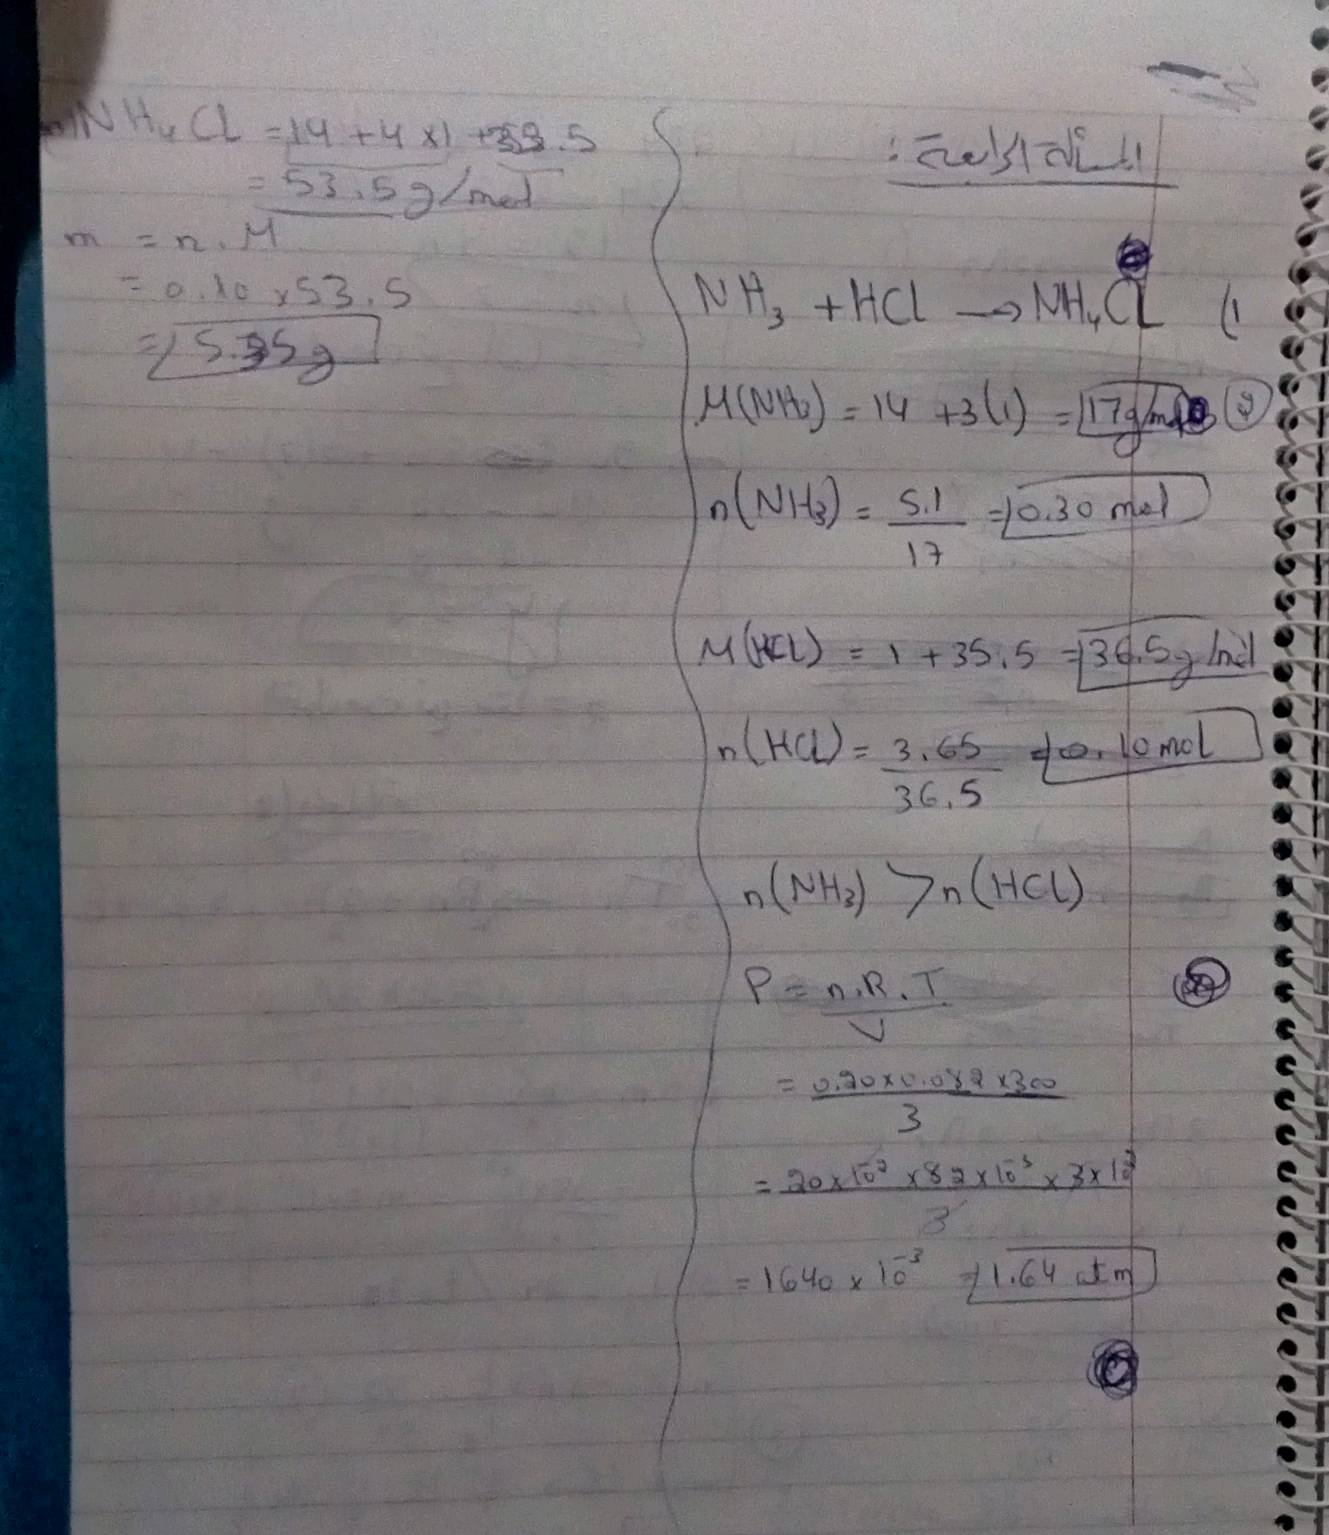 المسألة الرابعة:
NH₃ + HCl → NH₄Cl (1
M(NH₃) = 14 + 3(1) = 17g/mol (2
n(NH₃) = 5.1/17 = 0.30 mol
M(HCl) = 1 + 35.5 = 36.5g/mol
n(HCl) = 3.65/36.5 = 0.10 mol
n(NH₃) > n(HCl)
P = n.R.T/V
= 0.20×0.082×300/3
= 20×10⁻² ×82×10⁻³ × 3×10²/3
= 1640 × 10⁻³ = 1.64 atm
NH₄Cl = 14 + 4×1 + 35.5
= 53.5g/mol
m = n.M
= 0.10 ×53.5
= 5.35g